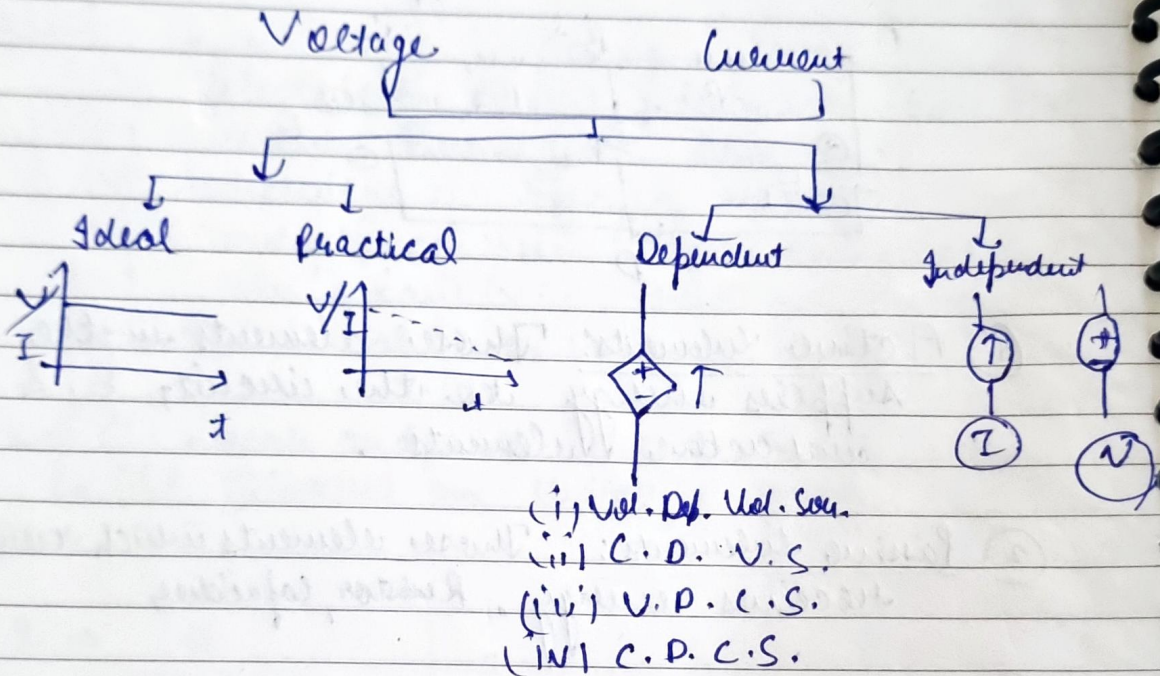 Voltage Current
Ideal Practical Dependent Independent
V/I
t
V/I
t
+
-
+
-
I
V
(i) Vol. Dep. Vol. Sou.
(ii) C. D. V. S.
(iv) V. D. C. S.
(iv) C. D. C. S.